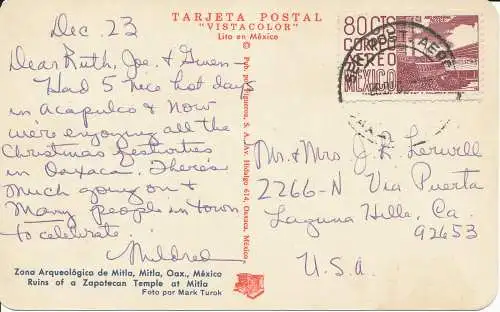 Dec. 23
TARJETA POSTAL
"VISTACOLOR"
Lito en México
Dear Ruth, Joe & Gwen -
Had 5 nice hot days
in Acapulco & now
we're enjoying all the
Christmas festivities
in Oaxaca. There's
much going on &
Many people in town
to celebrate.
Mildred
Zona Arqueológico de Mitla, Mitla, Oax., México
Ruins of a Zapotecan Temple at Mitla
Foto por Mark Turok
© Pub. por Figueroa, S. A., Av. Hidalgo 614, Oaxaca, México.
80 CTS
CORREO
AEREO
MEXICO
Mr. & Mrs J. L. Lerwill
2266-N Via Puerta
Laguna Hills, Ca.
92653
U.S.A.